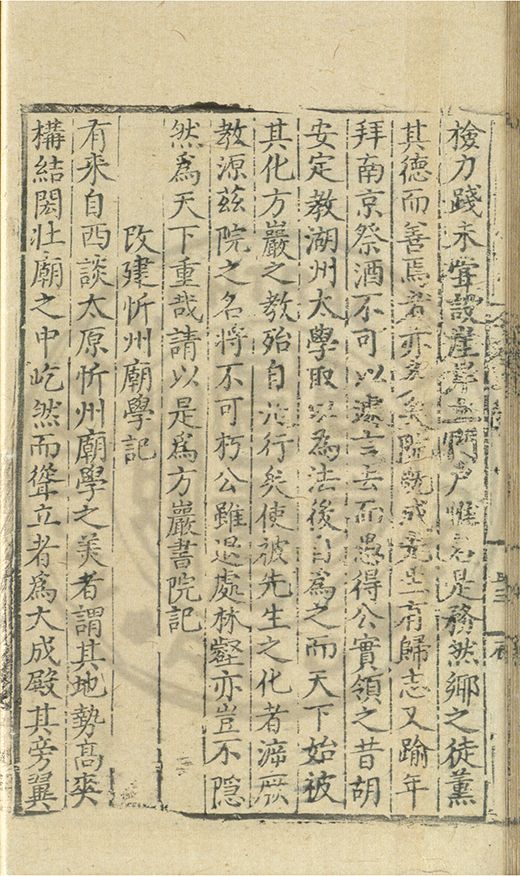 檢力踐未嘗設崖岸立門戶惟是務然鄉之徒薰
其德而善焉者亦衆矣院既成先生有歸志又踰年
拜南京祭酒不可以遽言去而愚得公實領之昔胡
安定教湖州太學取以為法後自為之而天下始被
其化方巖之教殆自此行矣使被先生之化者泝厥
教源茲院之名將不可朽公雖退處林壑亦豈不隱
然爲天下重哉請以是爲方巖書院記
改建忻州廟學記
有来自西談太原忻州廟學之美者謂其地勢高爽
構結閎壯廟之中屹然而聳立者爲大成殿其旁翼